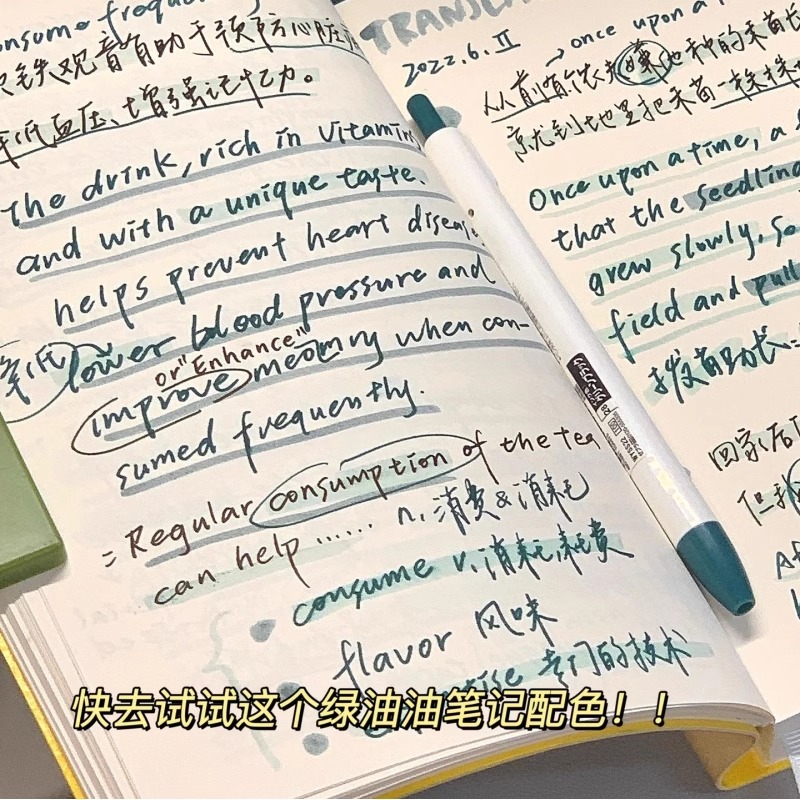 onsume frequen
铁观音有助于预防心脏
降低血压、增强记忆力。
the drink, rich in vitamins
and with a unique taste,
helps prevent heart disease,
降低 lower blood pressure and
or "Enhance"
improve meomry when con-
sumed frequently.
= Regular consumption of the tea
can help ...... n. 消费&消耗
consume v. 消耗,耗费
flavor 风味
tise 专门的技术
TRANSLA
2022.6.11
→ once upon a t
从前有个农夫嫌地种的禾苗长
就到地里把禾苗一株株
Once upon a time, a
that the seedling
grew slowly, so
field and pull
拔苗助长
回家后
但我
Af
快去试试这个绿油油笔记配色！！